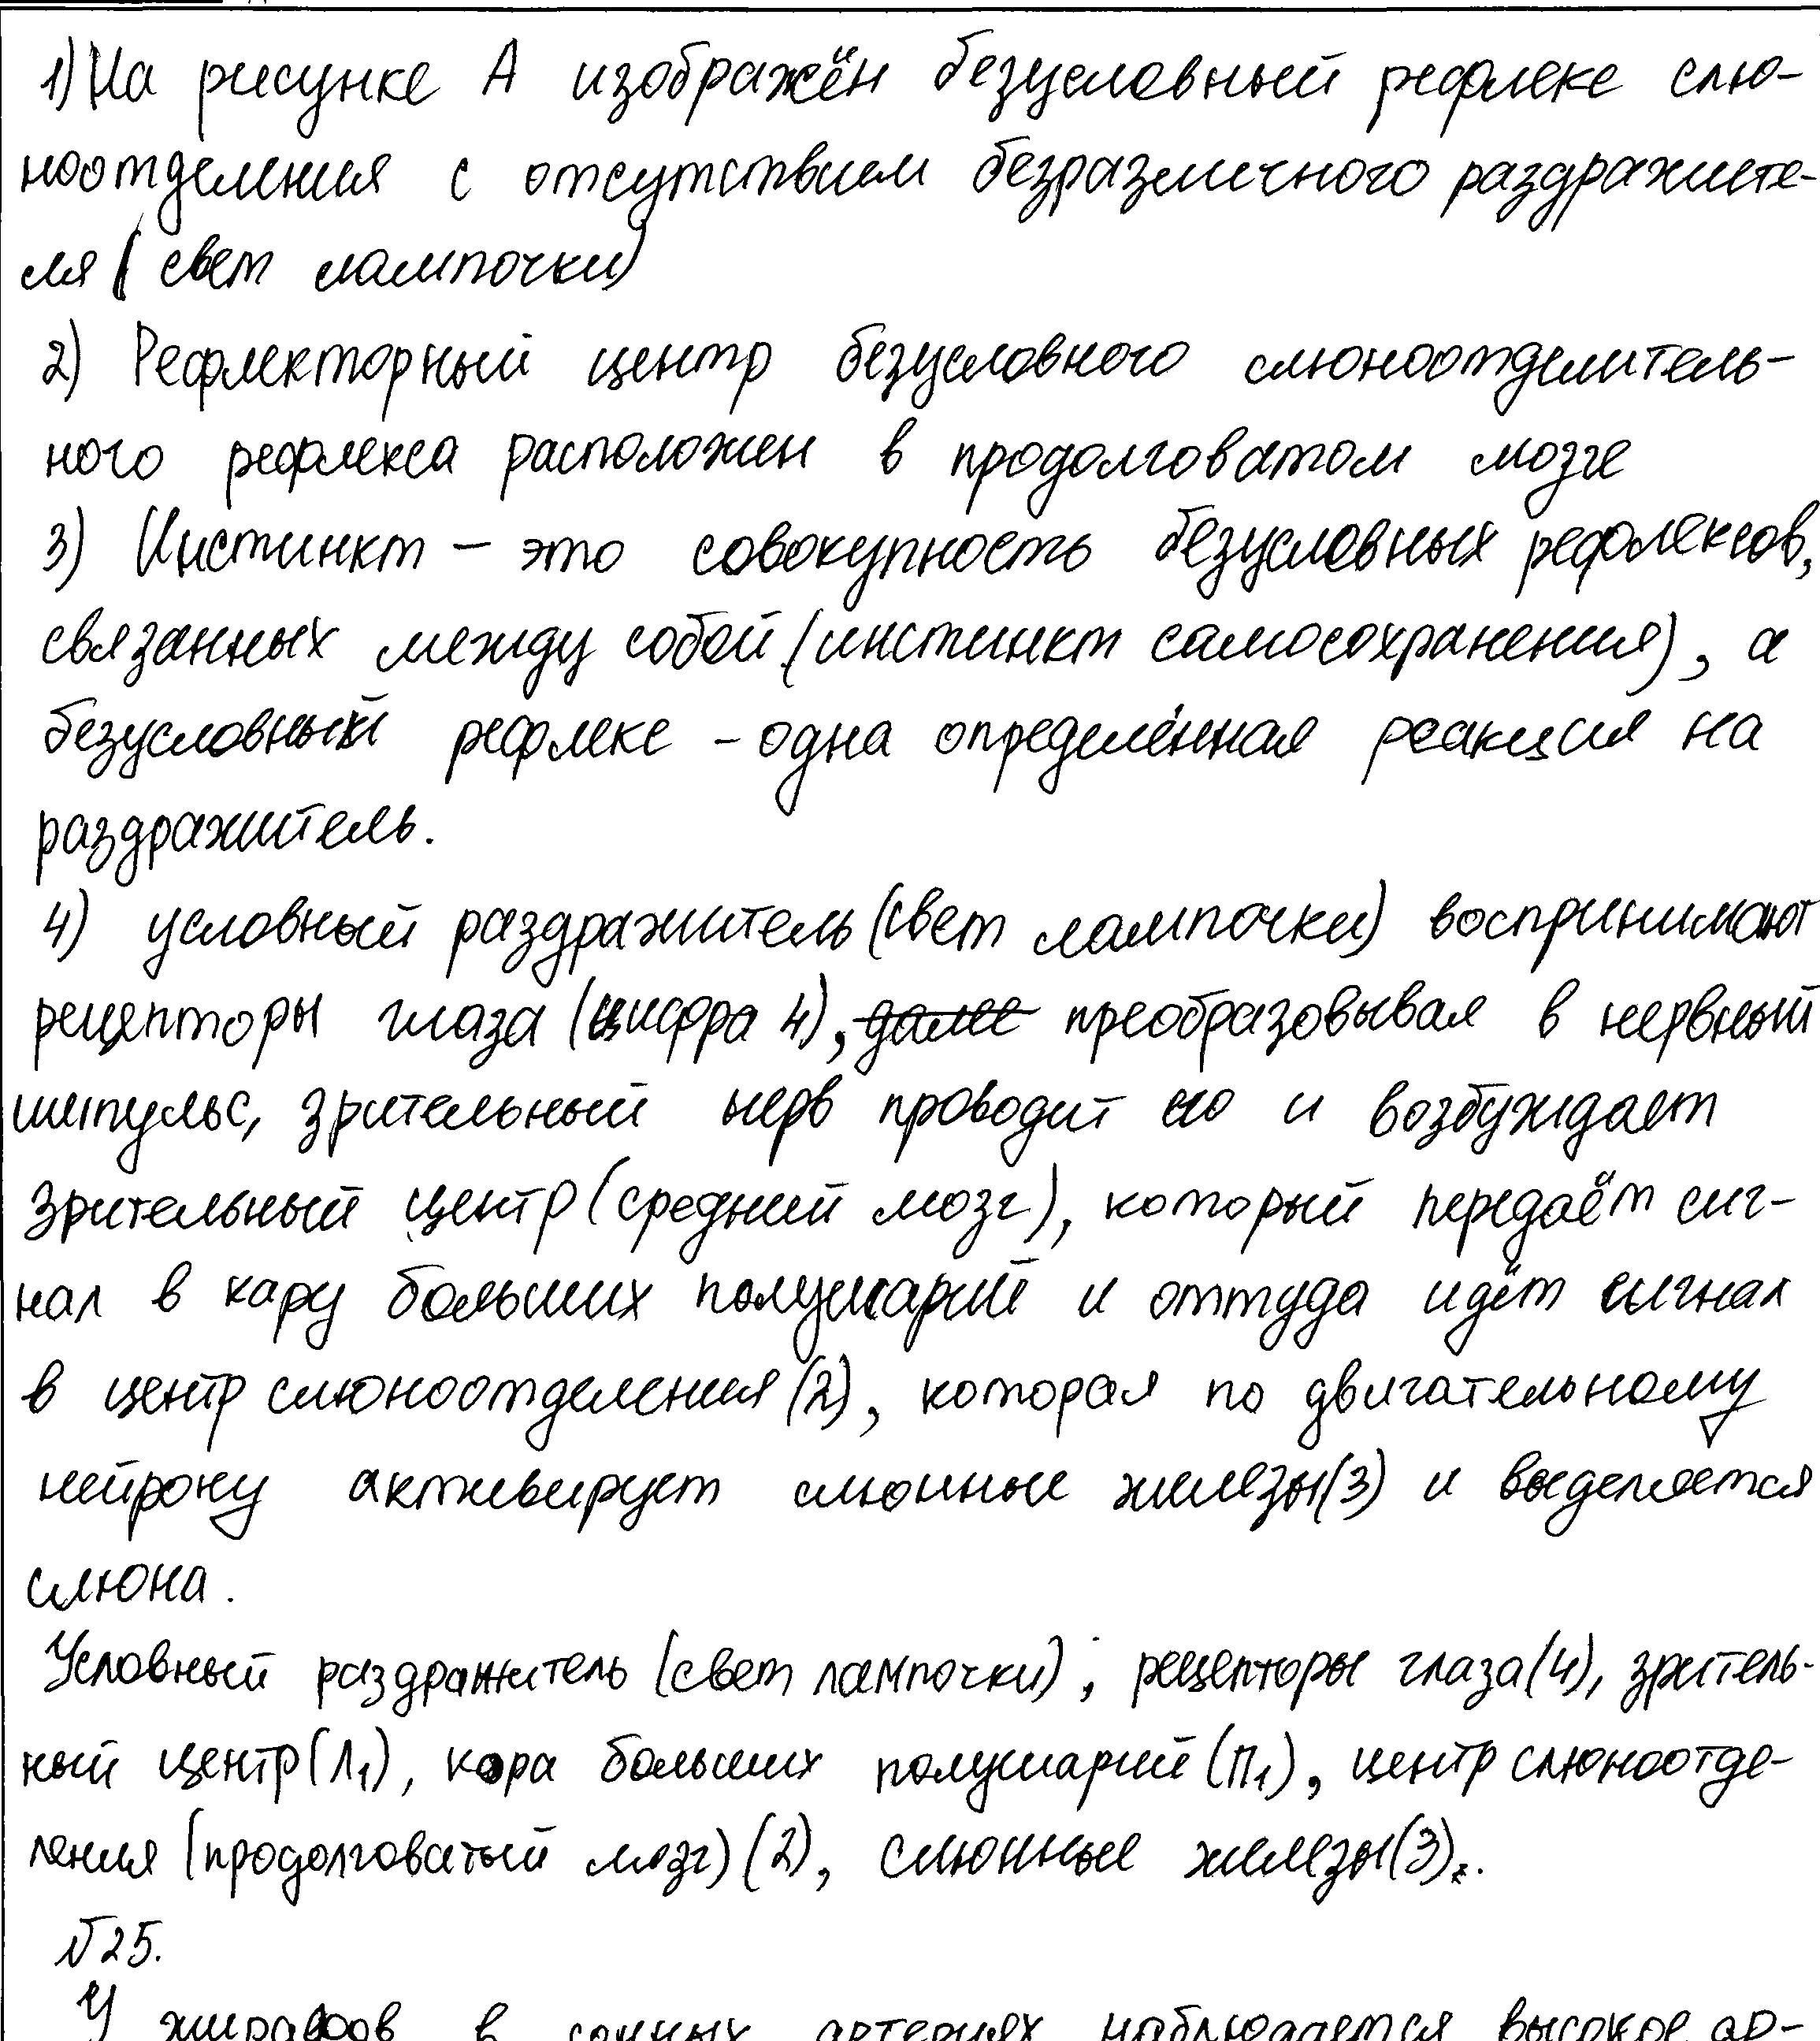 1) На рисунке А изображён безусловный рефлекс слю-
ноотделения с отсутствием безразличного раздражите-
ля (свет лампочки)
2) Рефлекторный центр безусловного слюноотделитель-
ного рефлекса расположен в продолговатом мозге
3) Инстинкт – это совокупность безусловных рефлексов,
связанных между собой (инстинкт самосохранения), а
безусловный рефлекс – одна определённая реакция на
раздражитель.
4) условный раздражитель (свет лампочки) воспринимают
рецепторы глаза (цифра 4), далее преобразовывая в нервный
импульс, зрительный нерв проводит его и возбуждает
зрительный центр (средний мозг), который передаёт сиг-
нал в кору больших полушарий и оттуда идёт сигнал
в центр слюноотделения (2), которая по двигательному
нейрону активирует слюнные железы (3) и выделяется
слюна.
Условный раздражитель (свет лампочки), рецепторы глаза (4), зритель-
ный центр (Л1), кора больших полушарий (П1), центр слюноотде-
ления (продолговатый мозг) (2), слюнные железы (3).
№25.
У жирафов в сонных артериях наблюдается высокое ар-